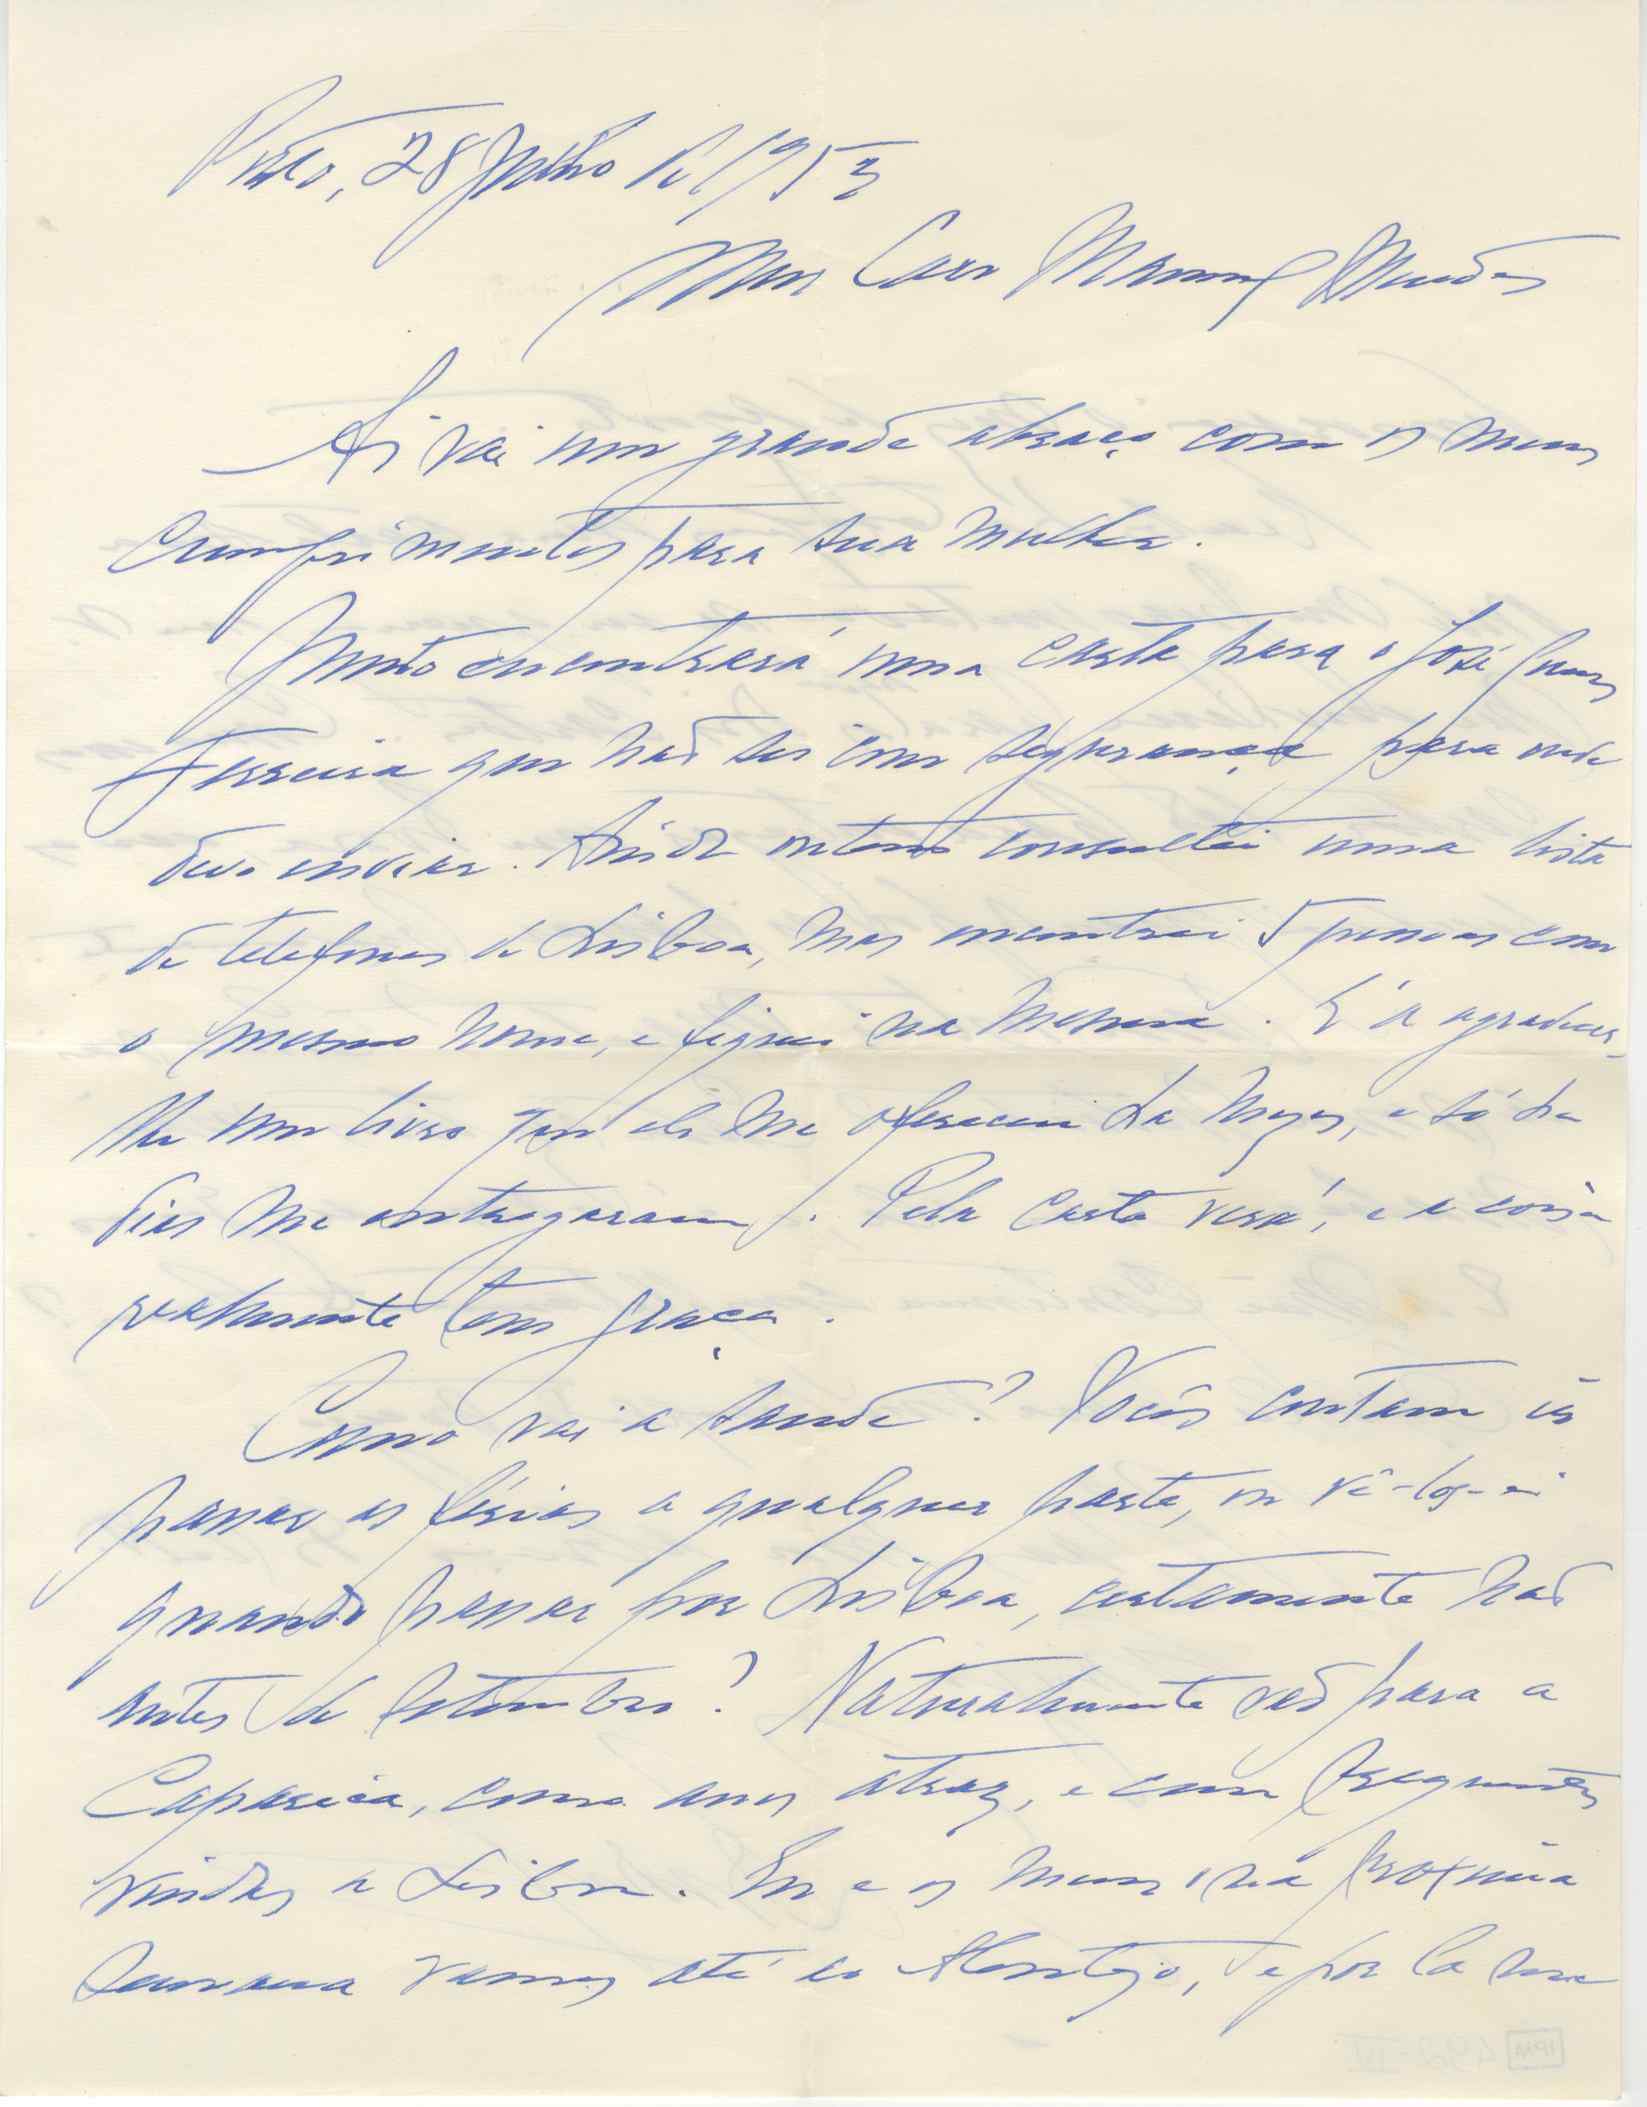 Porto, 28 Julho de 1953
Meu Caro Manuel Mendes
Aí vai um grande abraço com os meus
cumprimentos para sua mulher.
Junto encontrará uma carta para o José Gomes
Ferreira que não sei com segurança para onde
devo enviar. Ainda ontem consultei uma lista
de telefones de Lisboa, mas encontrei 5 pessoas com
o mesmo nome, e fiquei na mesma. É a agradecer-
lhe um livro que ele me ofereceu há mezes, e só há
dias me entregaram. Pela carta verá, e a coisa
realmente tem graça.
Como vai a saude? Vocês contam ir
passar as férias a qualquer parte, ou vê-los-ei
quando passar por Lisboa, certamente não
antes de Setembro? Naturalmente vão para a
Caparica, como anos atraz, e com frequentes
vindas a Lisboa. Eu e os meus na proxima
semana vamos até ao Alentejo, e por lá me